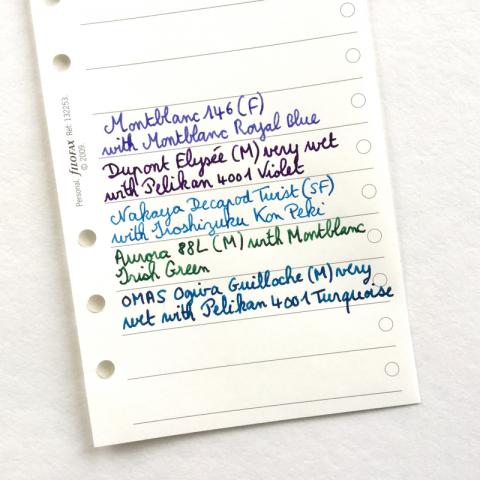 Montblanc 146 (F)
with Montblanc Royal Blue
Dupont Elysée (M) very wet
with Pelikan 4001 Violet
Nakaya Decapod Twist (SF)
with Iroshizuku Kon Peki
Aurora 88L (M) with Montblanc
Irish Green
OMAS Ogiva Guilloche (M) very
wet with Pelikan 4001 Turquoise
Personal. FILOFAX Ref: 132253.
© 2009.